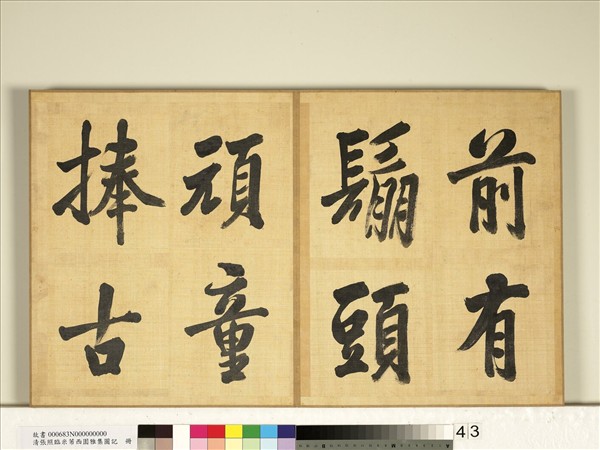 前有
鬅頭
頑童
捧古
故書 000683N000000000
清張照臨米芾西園雅集圖記 冊
43